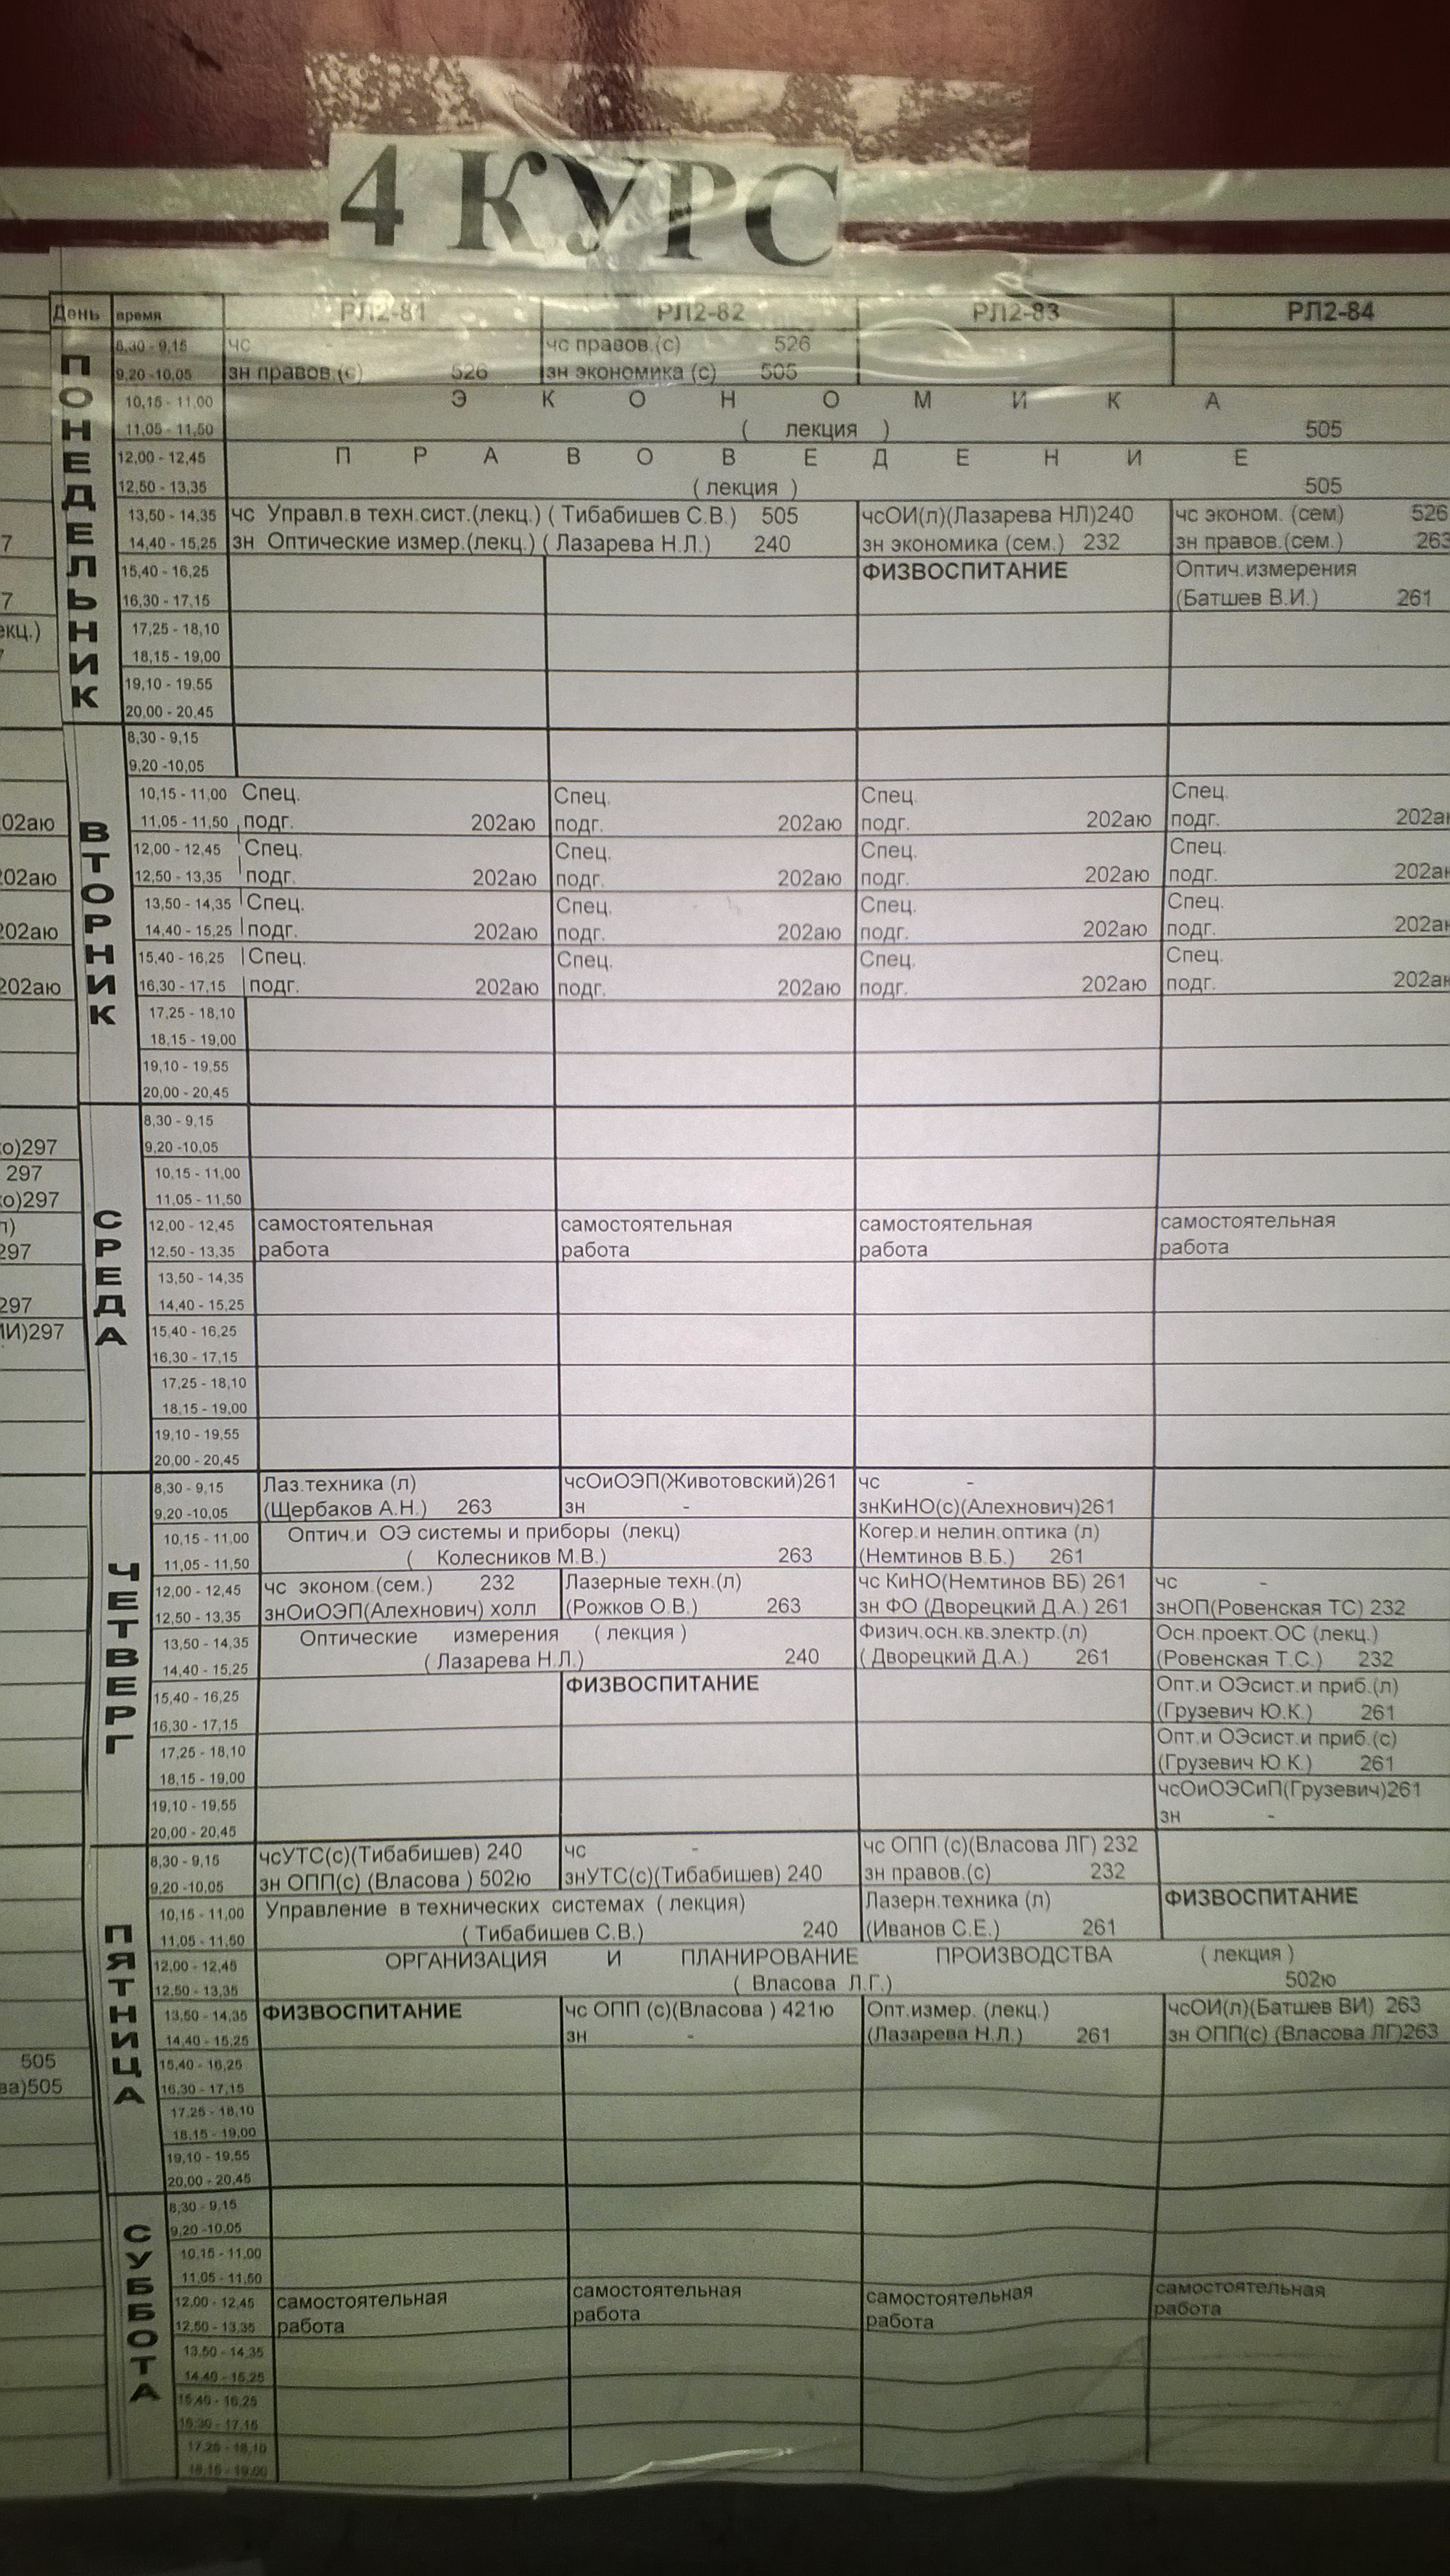 4 КУРС
День время РЛ2-81 РЛ2-82 РЛ2-83 РЛ2-84
ПОНЕДЕЛЬНИК
8,30 - 9,15 чс чс правов.(с) 526
9,20 -10,05 зн правов.(с) 526 зн экономика (с) 505
10,15 - 11,00 Э К О Н О М И К А
11,05 - 11,50 ( лекция ) 505
12,00 - 12,45 П Р А В О В Е Д Е Н И Е
12,50 - 13,35 ( лекция ) 505
13,50 - 14,35 чс Управл.в техн.сист.(лекц.) ( Тибабишев С.В.) 505 чсОИ(л)(Лазарева НЛ)240 чс эконом. (сем) 526
7 14,40 - 15,25 зн Оптические измер.(лекц.) ( Лазарева Н.Л.) 240 зн экономика (сем.) 232 зн правов.(сем.) 263
15,40 - 16,25 ФИЗВОСПИТАНИЕ Оптич.измерения
7 16,30 - 17,15 (Батшев В.И.) 261
екц.) 17,25 - 18,10
18,15 - 19,00
19,10 - 19,55
20,00 - 20,45
ВТОРНИК
8,30 - 9,15
9,20 -10,05
10,15 - 11,00 Спец. Спец. Спец. Спец.
02аю 11,05 - 11,50 подг. 202аю подг. 202аю подг. 202аю подг. 202аю
12,00 - 12,45 Спец. Спец. Спец. Спец.
02аю 12,50 - 13,35 подг. 202аю подг. 202аю подг. 202аю подг. 202аю
13,50 - 14,35 Спец. Спец. Спец. Спец.
202аю 14,40 - 15,25 подг. 202аю подг. 202аю подг. 202аю подг. 202аю
15,40 - 16,25 Спец. Спец. Спец. Спец.
202аю 16,30 - 17,15 подг. 202аю подг. 202аю подг. 202аю подг. 202аю
17,25 - 18,10
18,15 - 19,00
19,10 - 19,55
20,00 - 20,45
СРЕДА
8,30 - 9,15
о)297 9,20 -10,05
297 10,15 - 11,00
о)297 11,05 - 11,50
л) 12,00 - 12,45 самостоятельная самостоятельная самостоятельная самостоятельная
297 12,50 - 13,35 работа работа работа работа
13,50 - 14,35
297 14,40 - 15,25
ИИ)297 15,40 - 16,25
16,30 - 17,15
17,25 - 18,10
18,15 - 19,00
19,10 - 19,55
20,00 - 20,45
ЧЕТВЕРГ
8,30 - 9,15 Лаз.техника (л) чсОиОЭП(Животовский)261 чс -
9,20 -10,05 (Щербаков А.Н.) 263 зн - знКиНО(с)(Алехнович)261
10,15 - 11,00 Оптич.и ОЭ системы и приборы (лекц) Когер.и нелин.оптика (л)
11,05 - 11,50 ( Колесников М.В.) 263 (Немтинов В.Б.) 261
12,00 - 12,45 чс эконом.(сем.) 232 Лазерные техн.(л) чс КиНО(Немтинов ВБ) 261 чс -
12,50 - 13,35 знОиОЭП(Алехнович) холл (Рожков О.В.) 263 зн ФО (Дворецкий Д.А.) 261 знОП(Ровенская ТС) 232
13,50 - 14,35 Оптические измерения ( лекция ) Физич.осн.кв.электр.(л) Осн.проект.ОС (лекц.)
14,40 - 15,25 ( Лазарева Н.Л.) 240 ( Дворецкий Д.А.) 261 (Ровенская Т.С.) 232
15,40 - 16,25 ФИЗВОСПИТАНИЕ Опт.и ОЭсист.и приб.(л)
16,30 - 17,15 (Грузевич Ю.К.) 261
17,25 - 18,10 Опт.и ОЭсист.и приб.(с)
18,15 - 19,00 (Грузевич Ю.К.) 261
19,10 - 19,55 чсОиОЭСиП(Грузевич)261
20,00 - 20,45 зн -
ПЯТНИЦА
8,30 - 9,15 чсУТС(с)(Тибабишев) 240 чс - чс ОПП (с)(Власова ЛГ) 232
9,20 -10,05 зн ОПП(с) (Власова ) 502ю знУТС(с)(Тибабишев) 240 зн правов.(с) 232
10,15 - 11,00 Управление в технических системах ( лекция) Лазерн.техника (л) ФИЗВОСПИТАНИЕ
11,05 - 11,50 ( Тибабишев С.В.) 240 (Иванов С.Е.) 261
12,00 - 12,45 ОРГАНИЗАЦИЯ И ПЛАНИРОВАНИЕ ПРОИЗВОДСТВА ( лекция )
12,50 - 13,35 ( Власова Л.Г.) 502ю
13,50 - 14,35 ФИЗВОСПИТАНИЕ чс ОПП (с)(Власова ) 421ю Опт.измер. (лекц.) чсОИ(л)(Батшев ВИ) 263
14,40 - 15,25 зн - (Лазарева Н.Л.) 261 зн ОПП(с) (Власова ЛГ)263
505 15,40 - 16,25
ва)505 16,30 - 17,15
17,25 - 18,10
18,15 - 19,00
19,10 - 19,55
20,00 - 20,45
СУББОТА
8,30 - 9,15
9,20 -10,05
10,15 - 11,00
11,05 - 11,50
12,00 - 12,45 самостоятельная самостоятельная самостоятельная самостоятельная
12,50 - 13,35 работа работа работа работа
13,50 - 14,35
14,40 - 15,25
15,40 - 16,25
16,30 - 17,15
17,25 - 18,10
18,15 - 19,00